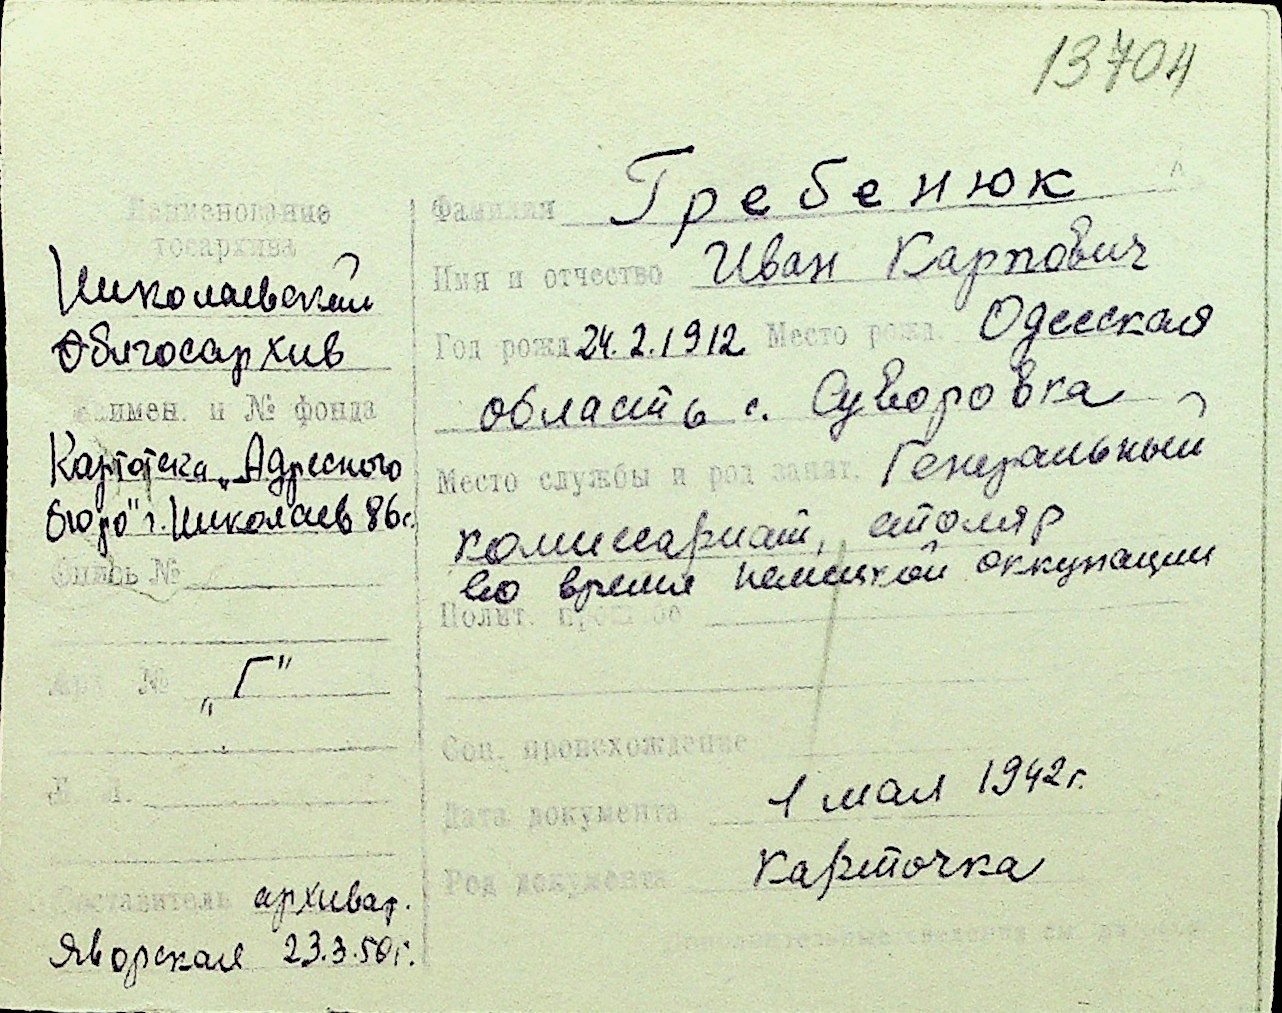 13704
Наименование
госархива
Николаевский
Облгосархив
Наимен. и № фонда
Картотека „Адресного
бюро" г. Николаев 86с.
Опись №
Арх. №
„Г"
Л. Л.
Составитель архивар.
Яворская 23.3.50г.
Фамилия Гребенюк
Имя и отчество Иван Карпович
Год рожд. 24.2.1912 Место рожд. Одесская
область с. Суворовка
Место службы и род занят. Генеральный
комиссариат, столяр
во время немецкой оккупации
Полит. прошлое
Соц. происхождение
Дата документа 1 мая 1942 г.
Род документа карточка
Дополнительные сведения см. на обор.